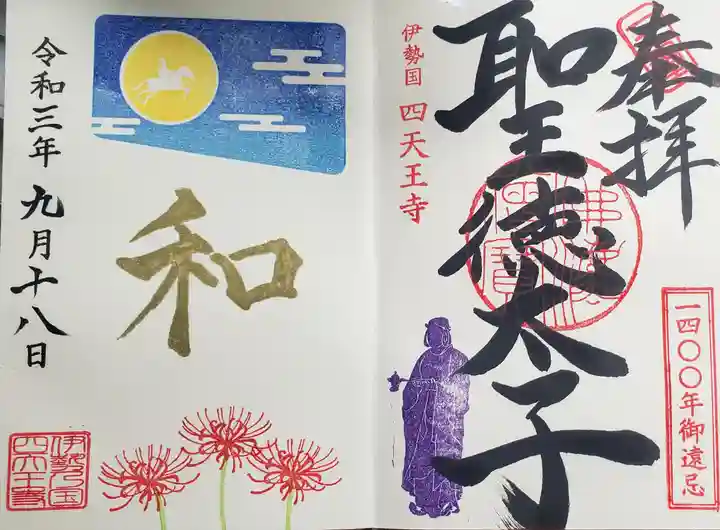 奉拝
聖徳太子
伊勢国 四天王寺
一四〇〇年御遠忌
和
令和三年九月十八日
伊勢乃国
四天王寺